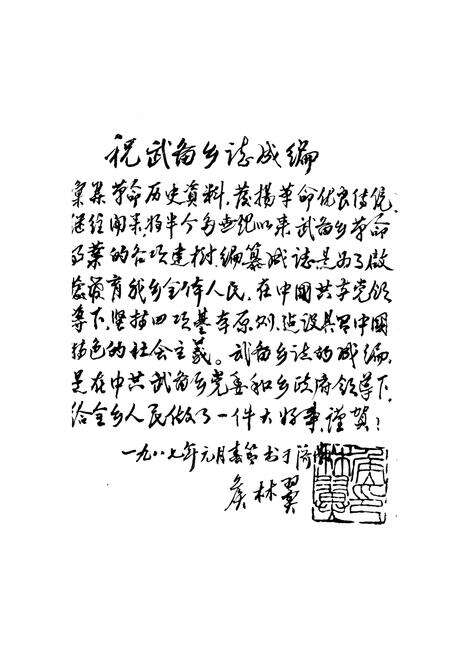 祝武备乡志成编
汇集革命历史资料,发扬革命优良传统,
继往开来将半个多世纪以来武备乡革命
事业的各项建树,编纂成志是为了启
发教育我乡全体人民,在中国共产党领
导下,坚持四项基本原则,建设具有中国
特色的社会主义。武备乡志的成编,
是在中共武备乡党委和乡政府领导下,
给全乡人民做了一件大好事,谨贺!
一九八七年元月书于济南
侯林翼